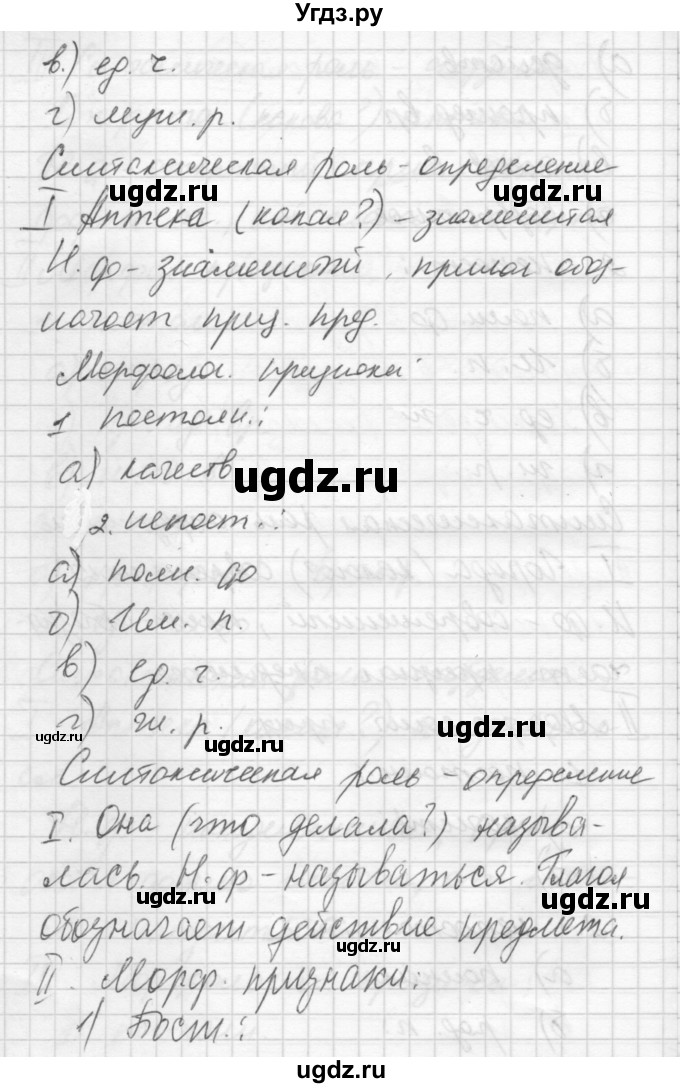 Угдз.ру
в.) ед. ч.
г) муж. р.
ugdz.ru
Синтаксическая роль - определение
ugdz.ru ugdz.ru
I Аптека (какая?) - знаменитая
Н. ф - знаменитый, прилаг обоз-
начает приз. пред.
Морфола. признаки:
1 постоян.:
а) качеств
ugdz.ru
2. непост.:
а) полн. ф
б) Им. п.
в) ед. ч.
г) ж. р.
ugdz.ru
ugdz.ru
ugdz.ru
Синтаксическая роль - определение
I. Она (что делала?) называ-
лась. Н. ф - называться. Глагол
ugdz.ru
ugdz.ru
обозначает действие предмета.
ugdz.ru
II. Морф. признаки:
1) Пост.:
ugdz.ru